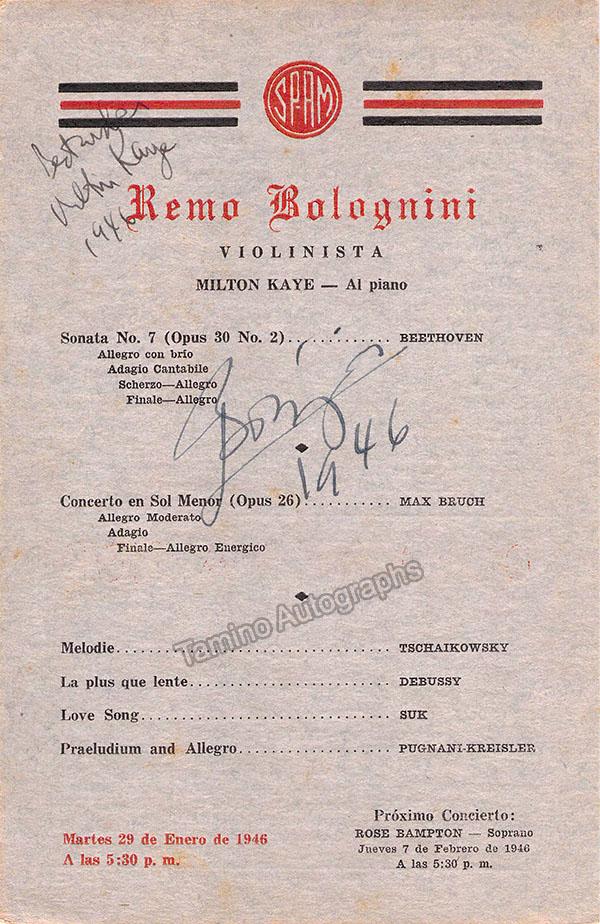 SPAM
Best wishes
Milton Kaye
1946
Remo Bolognini
VIOLINISTA
MILTON KAYE — Al piano
Sonata No. 7 (Opus 30 No. 2)............. BEETHOVEN
Allegro con brio
Adagio Cantabile
Scherzo—Allegro
Finale—Allegro
1946
Concerto en Sol Menor (Opus 26)........... MAX BRUCH
Allegro Moderato
Adagio
Finale—Allegro Energico
Tamino Autographs
Melodie.................................. TSCHAIKOWSKY
La plus que lente........................ DEBUSSY
Love Song............................... SUK
Praeludium and Allegro.................. PUGNANI-KREISLER
Martes 29 de Enero de 1946
A las 5:30 p. m.
Próximo Concierto:
ROSE BAMPTON — Soprano
Jueves 7 de Febrero de 1946
A las 5:30 p. m.